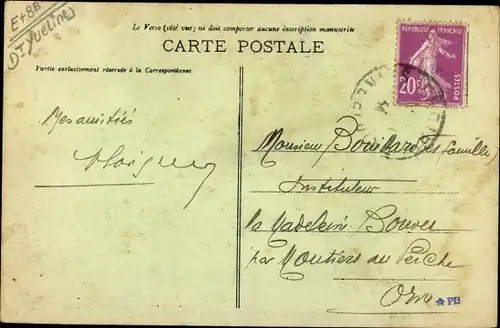 E+8B
Dt Yvelines
Le Verso (côté vue) ne doit comporter aucune inscription manuscrite
CARTE POSTALE
Partie exclusivement réservée à la Correspondance
REPUBLIQUE FRANÇAISE
20c
POSTES
Mes amitiés
Monsieur Bouillard et famille
Instituteur
La Madeleine Bouvet
par Moutiers au Perche
Orne
PB